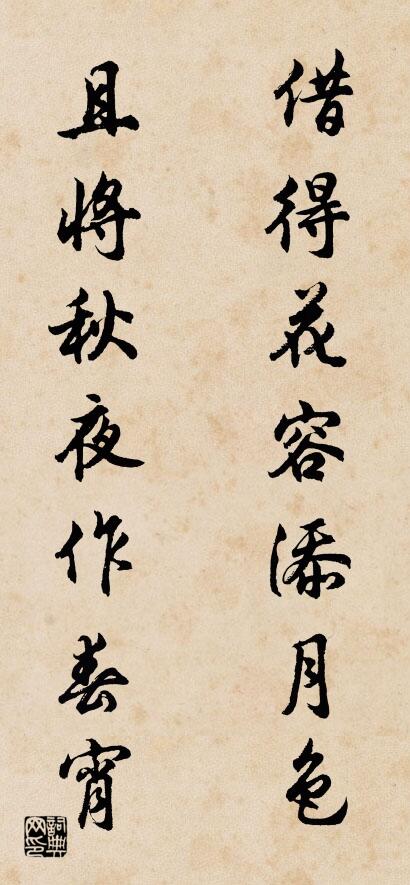 借得花容添月色
且將秋夜作春宵
詞典网印